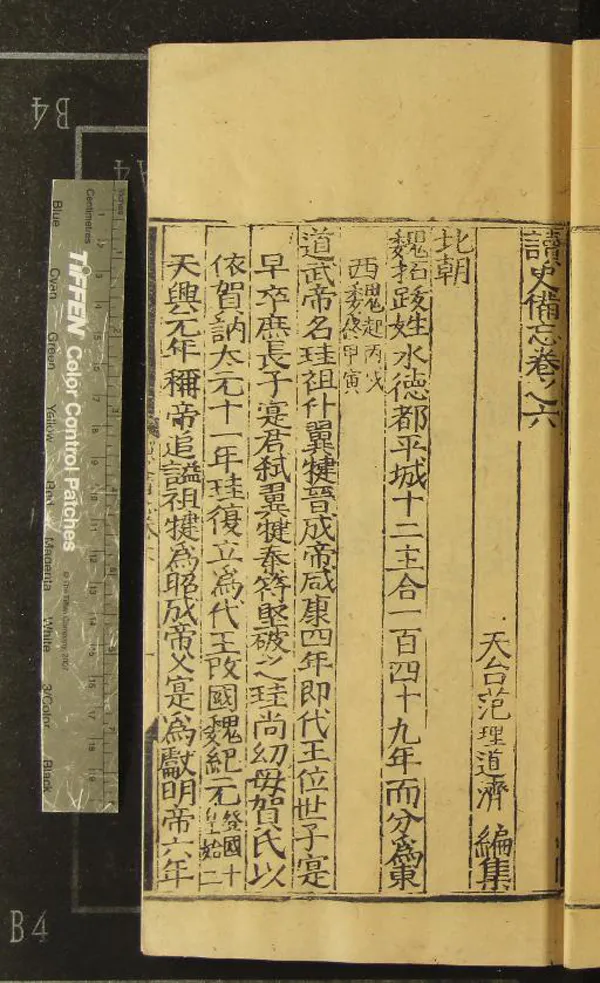 讀史備忘卷之六
天台范理道濟編集
北朝
魏拓跋姓水德都平城十二主合一百四十九年而分為東
西魏起丙戌
魏終甲寅
道武帝名珪祖什翼犍晉成帝咸康四年即代王位世子寔
早卒庶長子寔君弒翼犍秦符堅破之珪尚幼毋賀氏以
依賀訥太元十一年珪復立為代王改國魏紀元登國十
皇始二
天興元年稱帝追謚祖犍為昭成帝父寔為獻明帝六年
B4
A4
B4
Inches
Centimetres
TIFFEN Color Control Patches
© The Tiffen Company, 2007
Blue
Cyan
Green
Yellow
Red
Magenta
White
3/Color
Black